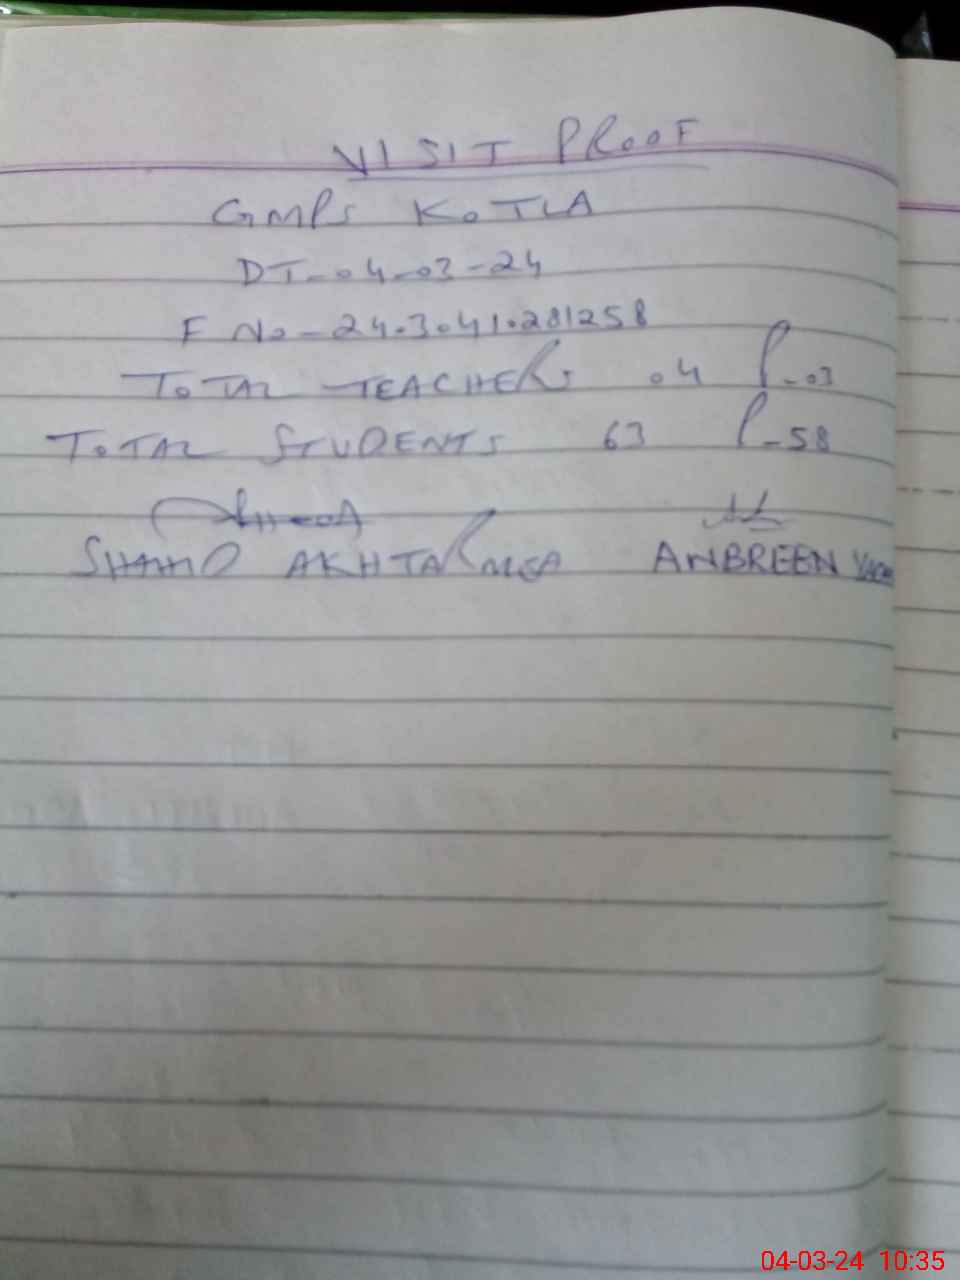 VISIT PROOF
GMPS KOTLA
DT-04-03-24
F No-24.3041.281258
TOTAL TEACHERS 04 P-03
TOTAL STUDENTS 63 P-58
AKHTAR MEA AMBREEN
04-03-24 10:35